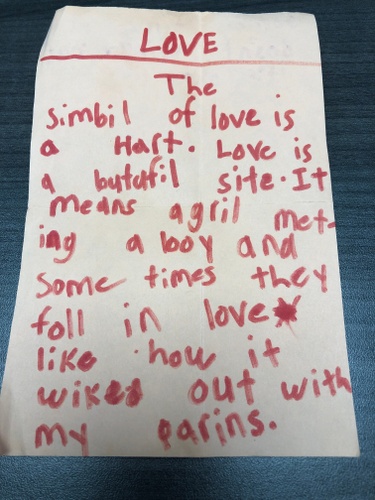 LOVE
The
simbil of love is
a Hart. Love is
a butdfil site. It
means agril met-
ing a boy and
some times they
foll in love
like how it
wiked out with
my parins.